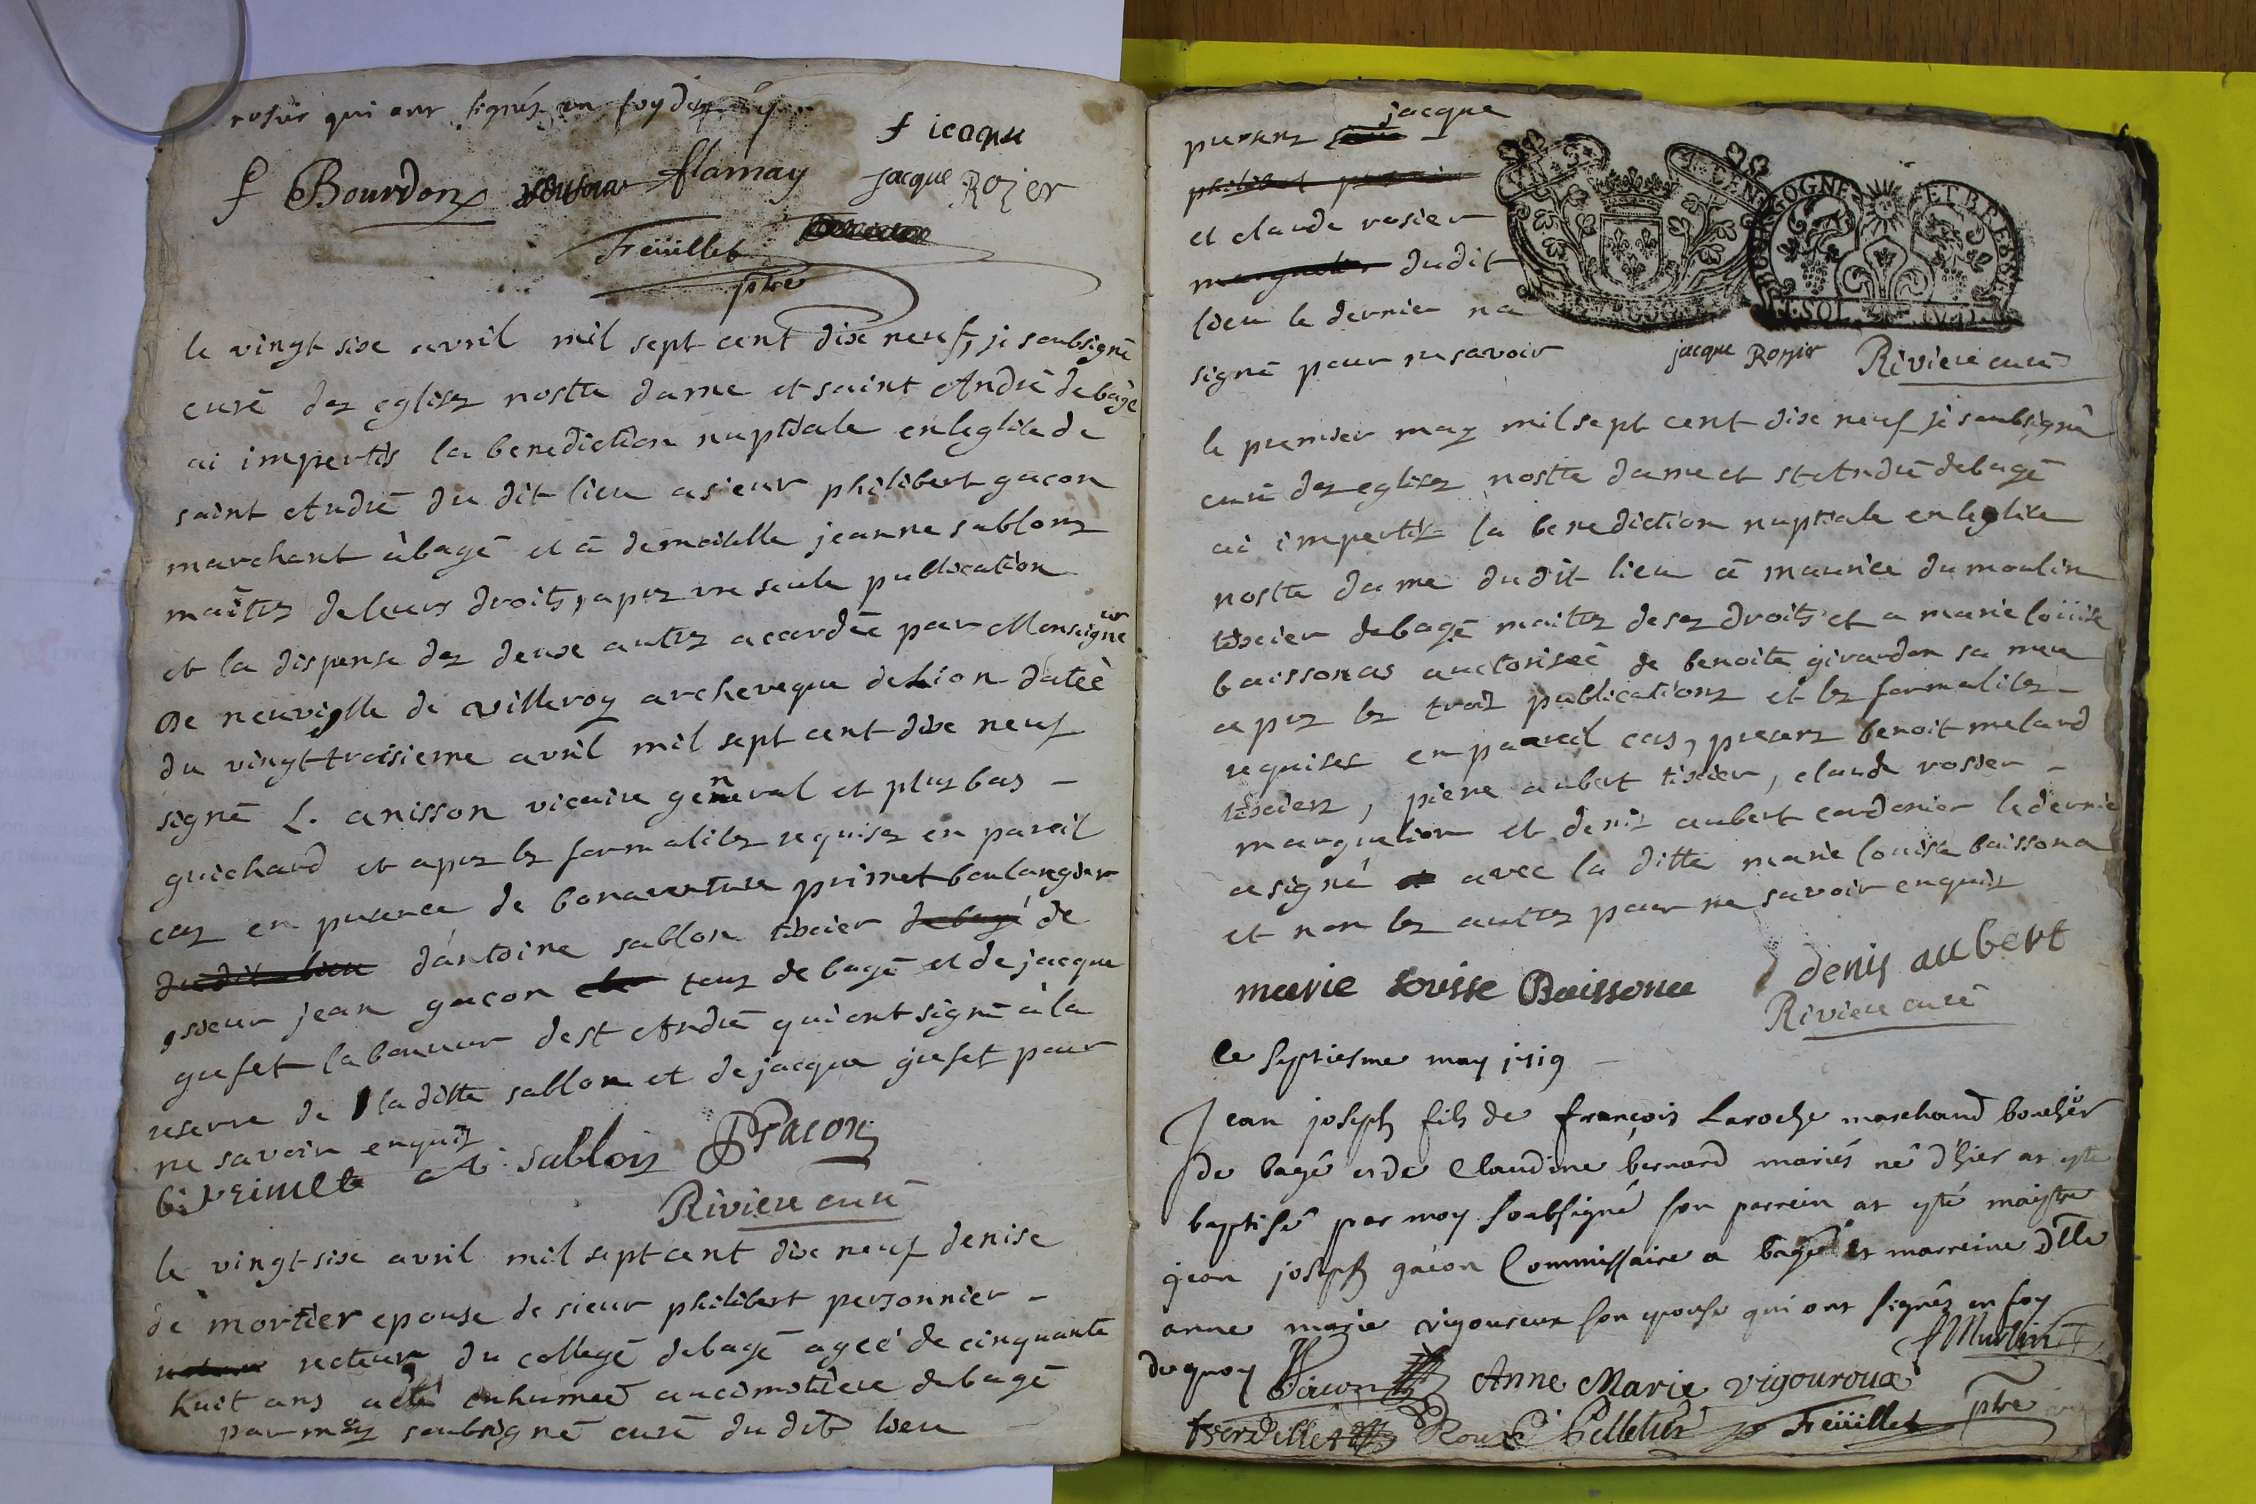 rosier qui ont signés en foy de quoy
f icaque
f Bourdon flamay jacque Rojer
Freüillet
ptre
le vingt sixe avril mil sept cent dixe neuf, je soubsigné
curé dez eglisez nostre dame et saint André debagé
ai impertis la benediction nuptiale en leglise de
saint André du dit lieu a sieur philibert gacon
marchant à bagé et a demoiselle jeanne sablonz
maîtrez de leurs droits, aprez une seule publication
et la dispense dez deuxe autrez accordée par Monseigneur
De neuville de villeroy archeveque de Lion datée
du vingt troisieme avril mil sept cent dixe neuf
signé L. anisson vicaire general et plus bas -
guichard et aprez lez formalitez requisez en pareil
caz en presence de bonaventure primet boulangier
dudit lieu dantoine sablon tixier debagé de
sieur jean gacon touz de bagé et de jacque
gueset laboureur de st André qui ont signé à la
reserve de la ditte sablon et de jacque gueset pour
ne savoir enquiz
b: primet A. sablon Gacon
Riviere curé
le vingt-sixe avril mil sept cent dixe neuf denise
de mortier epouse de sieur philibert personnier -
recteur du collegé debagé ageé de cinquante
huit ans a eté enhumeé au cimetiere debagé
par moy soubsigné curé du dit lieu
presenz jacque
philibert
et claude rosier
marguelier dudit
lieu le dernier na
signé pour ne savoir
BOURGOGNE ET BRESSE
SOL
jacque Rozier Riviere curé
le premier may mil sept cent dixe neuf je soubsigné
curé dez eglisez nostre dame et st André debagé
ai impertis la benediction nuptiale en leglise
nostre dame du dit lieu a maurice dumoulin
tixier debagé maitrez de sez droits et a marie loüise
baissonas auctoriseé de benoite girardon sa mere
aprez lez troiz publicationz et lez formalitez -
requises en pareil cas, presenz benoit melard
tixierz, pierre aubert tixier, claude rosier -
marguelier et deniz aubert cordonier le dernier
a signé avec la ditte marie louise baissona
et non lez autrez pour ne savoir enquiz
marie Louisse Baissona denis aubert
Riviere curé
le septiesme may 1719 -
Jean joseph fils de françois Laroche marchand boucher
de bagé et de Claudine bernard mariés né d'hier at esté
baptisé par moy soubsigné son parrein at esté maistre
jean joseph gacon Commissaire a bagé et marreine Dlle
anne marie vigoureux son epouse qui ont signés en foy
de quoy Gacon Anne Marie vigouroux Murlin
Roux Pelletier Freüillet ptre